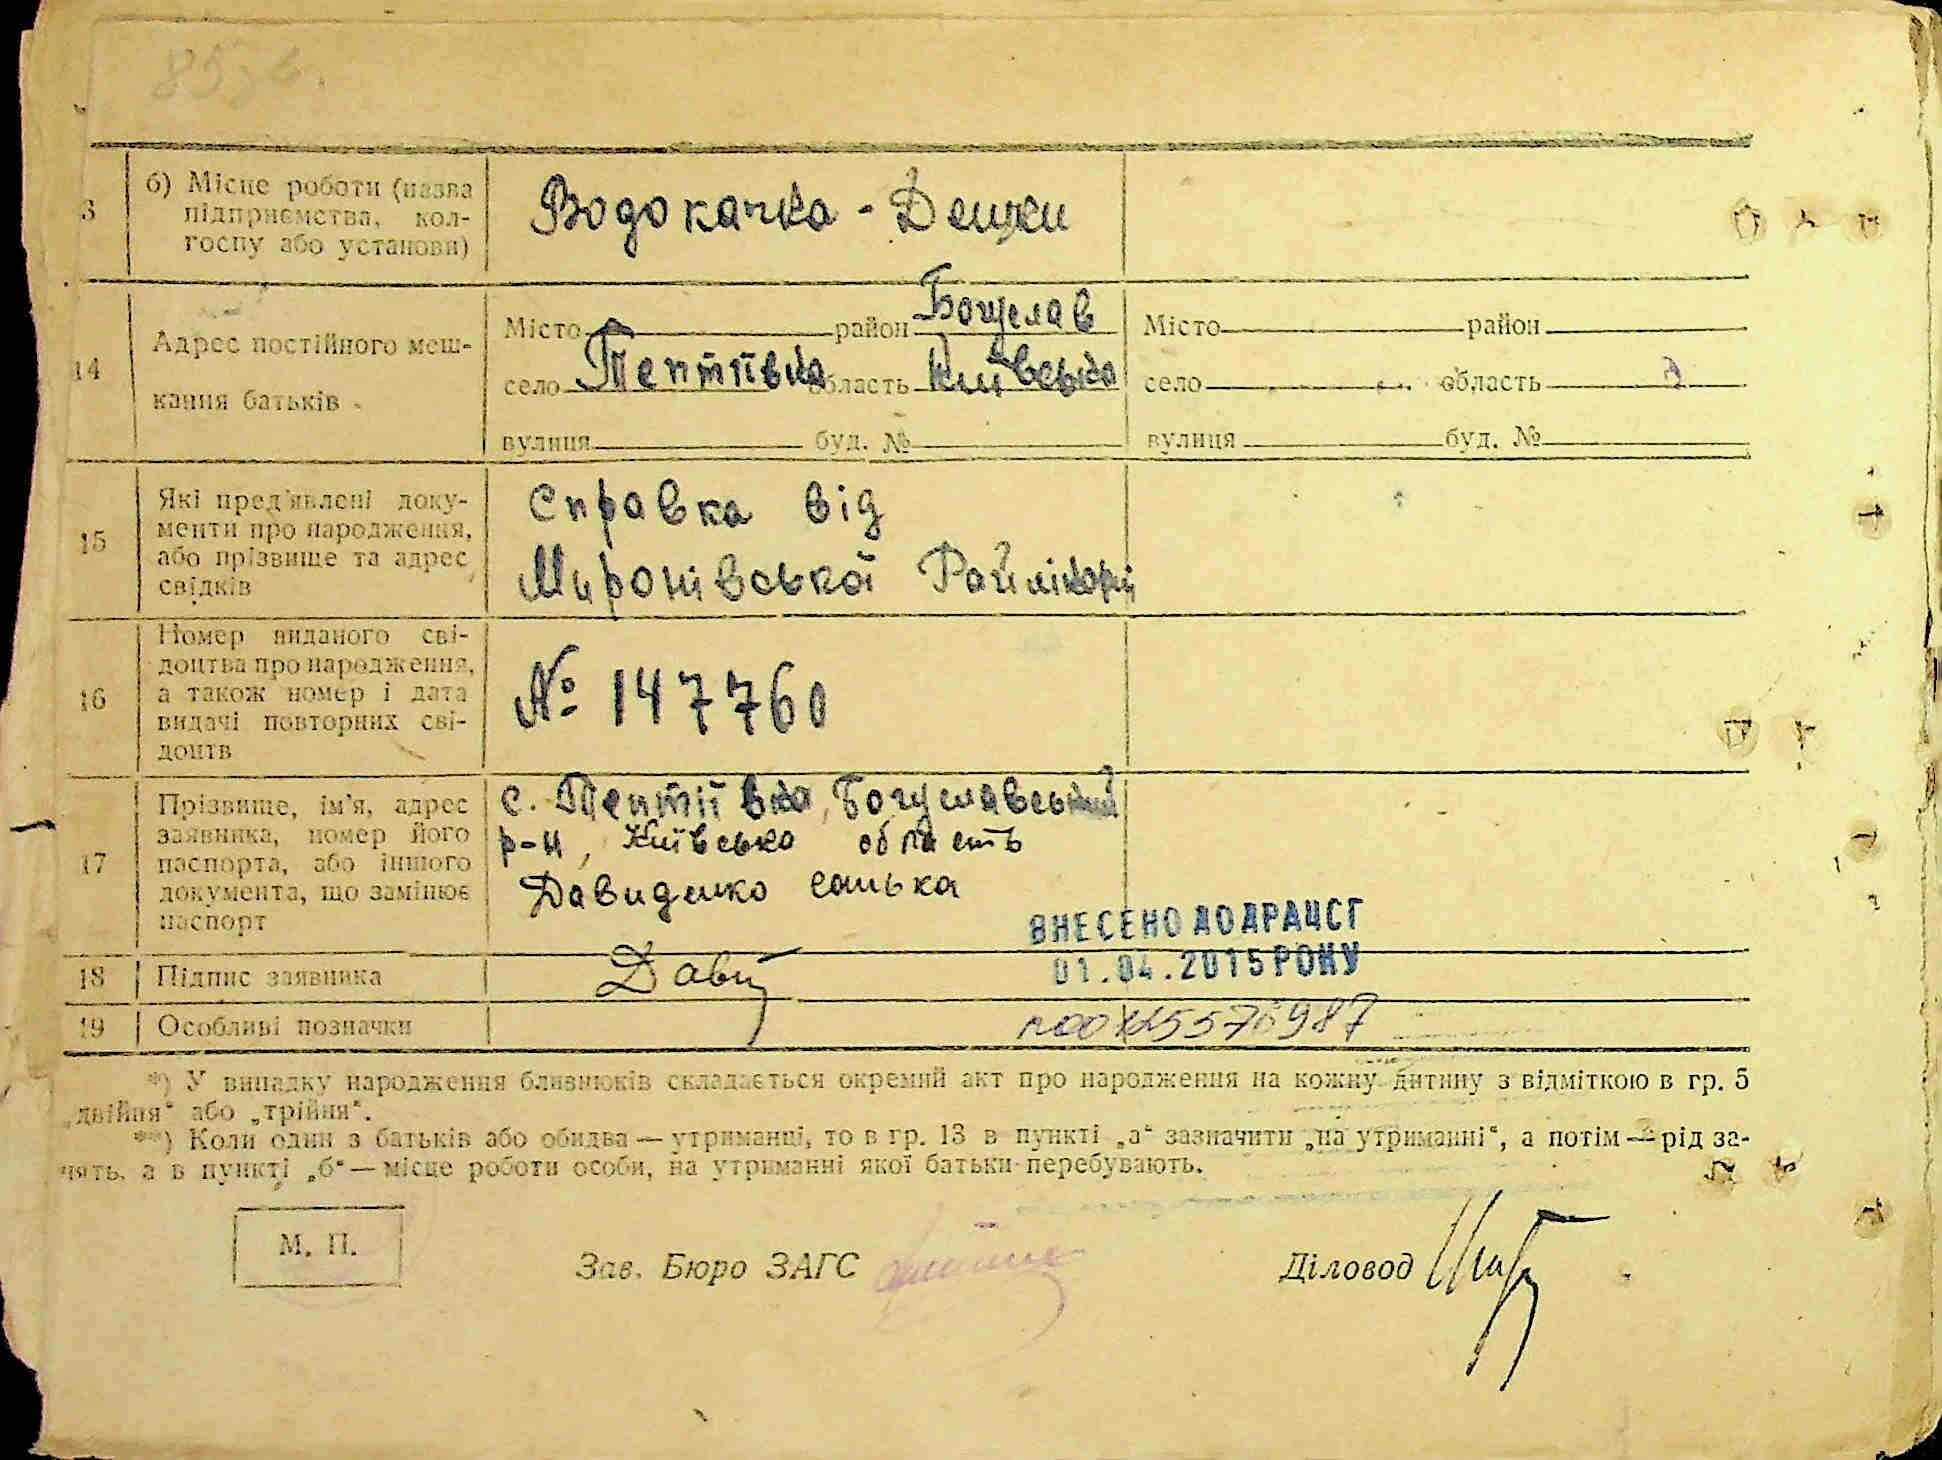 3
б) Місце роботи (назва
підприємства, кол-
госпу або установи)
Водокачка - Дешки
14
Адрес постійного меш-
кання батьків
Місто район Богуслав
село Тептіївка область Київська
вулиця буд. №
Місто район
село область
вулиця буд. №
15
Які пред'явлені доку-
менти про народження,
або прізвище та адрес
свідків
Справка від
Миронівської Райлікарні
16
Номер виданого сві-
доцтва про народження,
а також номер і дата
видачі повторних сві-
доцтв
№ 147760
17
Прізвище, ім'я, адрес
заявника, номер його
паспорта, або іншого
документа, що замінює
паспорт
с. Тептіївка, Богуславський
р-н, Київська область
Давиденко
ВНЕСЕНО ДО ДРАЦСГ
01.04.2015 РОКУ
18
Підпис заявника
19
Особливі позначки
*) У випадку народження близнюків складається окремий акт про народження на кожну дитину з відміткою в гр. 5
„двійня“ або „трійня“.
**) Коли один з батьків або обидва — утриманці, то в гр. 13 в пункті „а“ зазначити „на утриманні“, а потім — рід за-
нять, а в пункті „б“ — місце роботи особи, на утриманні якої батьки перебувають.
М. П.
Зав. Бюро ЗАГС
Діловод